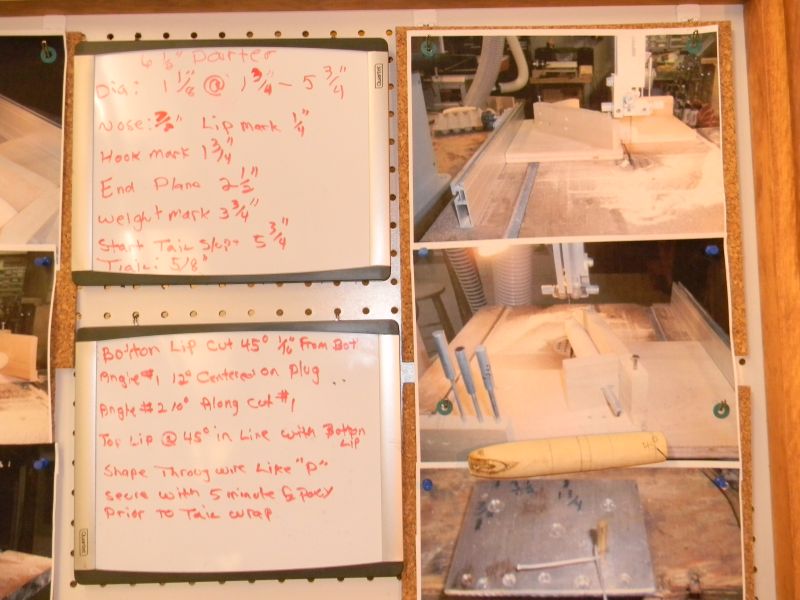 6 1/2" Darter
Dia: 1 1/8" @ 1 3/4" - 5 3/4"
Nose: Lip mark 1/4"
Hook mark 1 3/4"
End Plane 2 1/2"
weight mark 3 3/4"
Start Tail 5 3/4"
Tail: 5/8"
Quartet
Botton Lip Cut 45° 1/16" From Bot
Angle #1 12° Centered on Plug
Angle #2 10° Along Cut #1
Top Lip @ 45° in Line with Botton
Lip
Shape Throug wire Like "P"
secure with 5 minute Epoxy
Prior To Tail wrap
Quartet